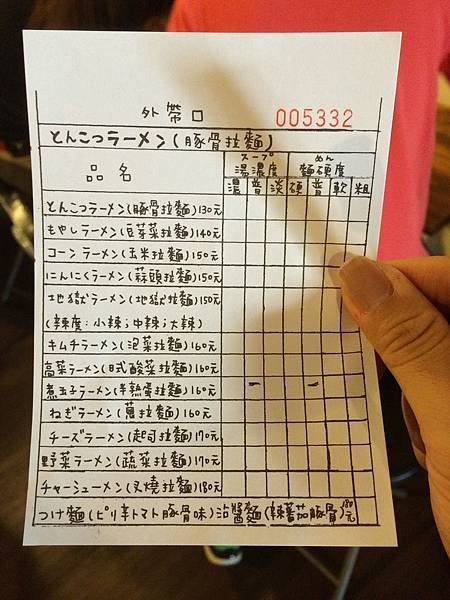 外帶口 005332
とんこつラーメン(豚骨拉麵)
品名 スープ 湯濃度 めん 麵硬度
濃 普 淡 硬 普 軟 粗
とんこつラーメン(豚骨拉麵)130元
もやしラーメン(豆芽菜拉麵)140元
コーンラーメン(玉米拉麵)150元
にんにくラーメン(蒜頭拉麵)150元
地獄ラーメン(地獄拉麵)150元
(辣度:小辣;中辣;大辣)
キムチラーメン(泡菜拉麵)160元
高菜ラーメン(日式酸菜拉麵)160元
煮玉子ラーメン(半熟蛋拉麵)160元
ねぎラーメン(蔥拉麵)160元
チーズラーメン(起司拉麵)170元
野菜ラーメン(蔬菜拉麵)170元
チャーシューメン(叉燒拉麵)180元
つけ麵(ピリ辛トマト豚骨味)沾醬麵(辣蕃茄豚骨)180元